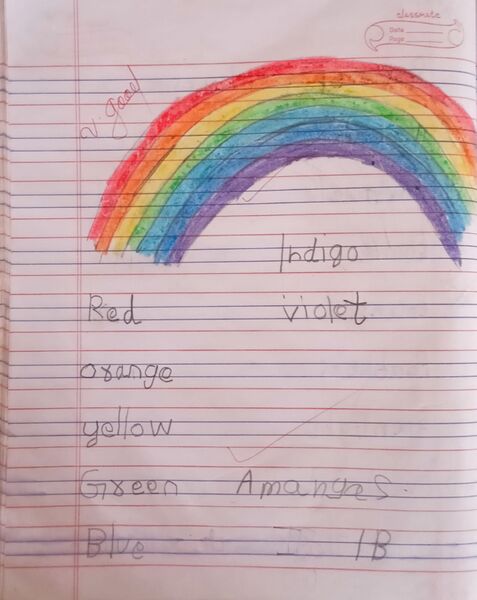 classmate
Date
Page
v. good
Indigo
Red violet
orange
yellow
Green Amangres.
Blue I 1B